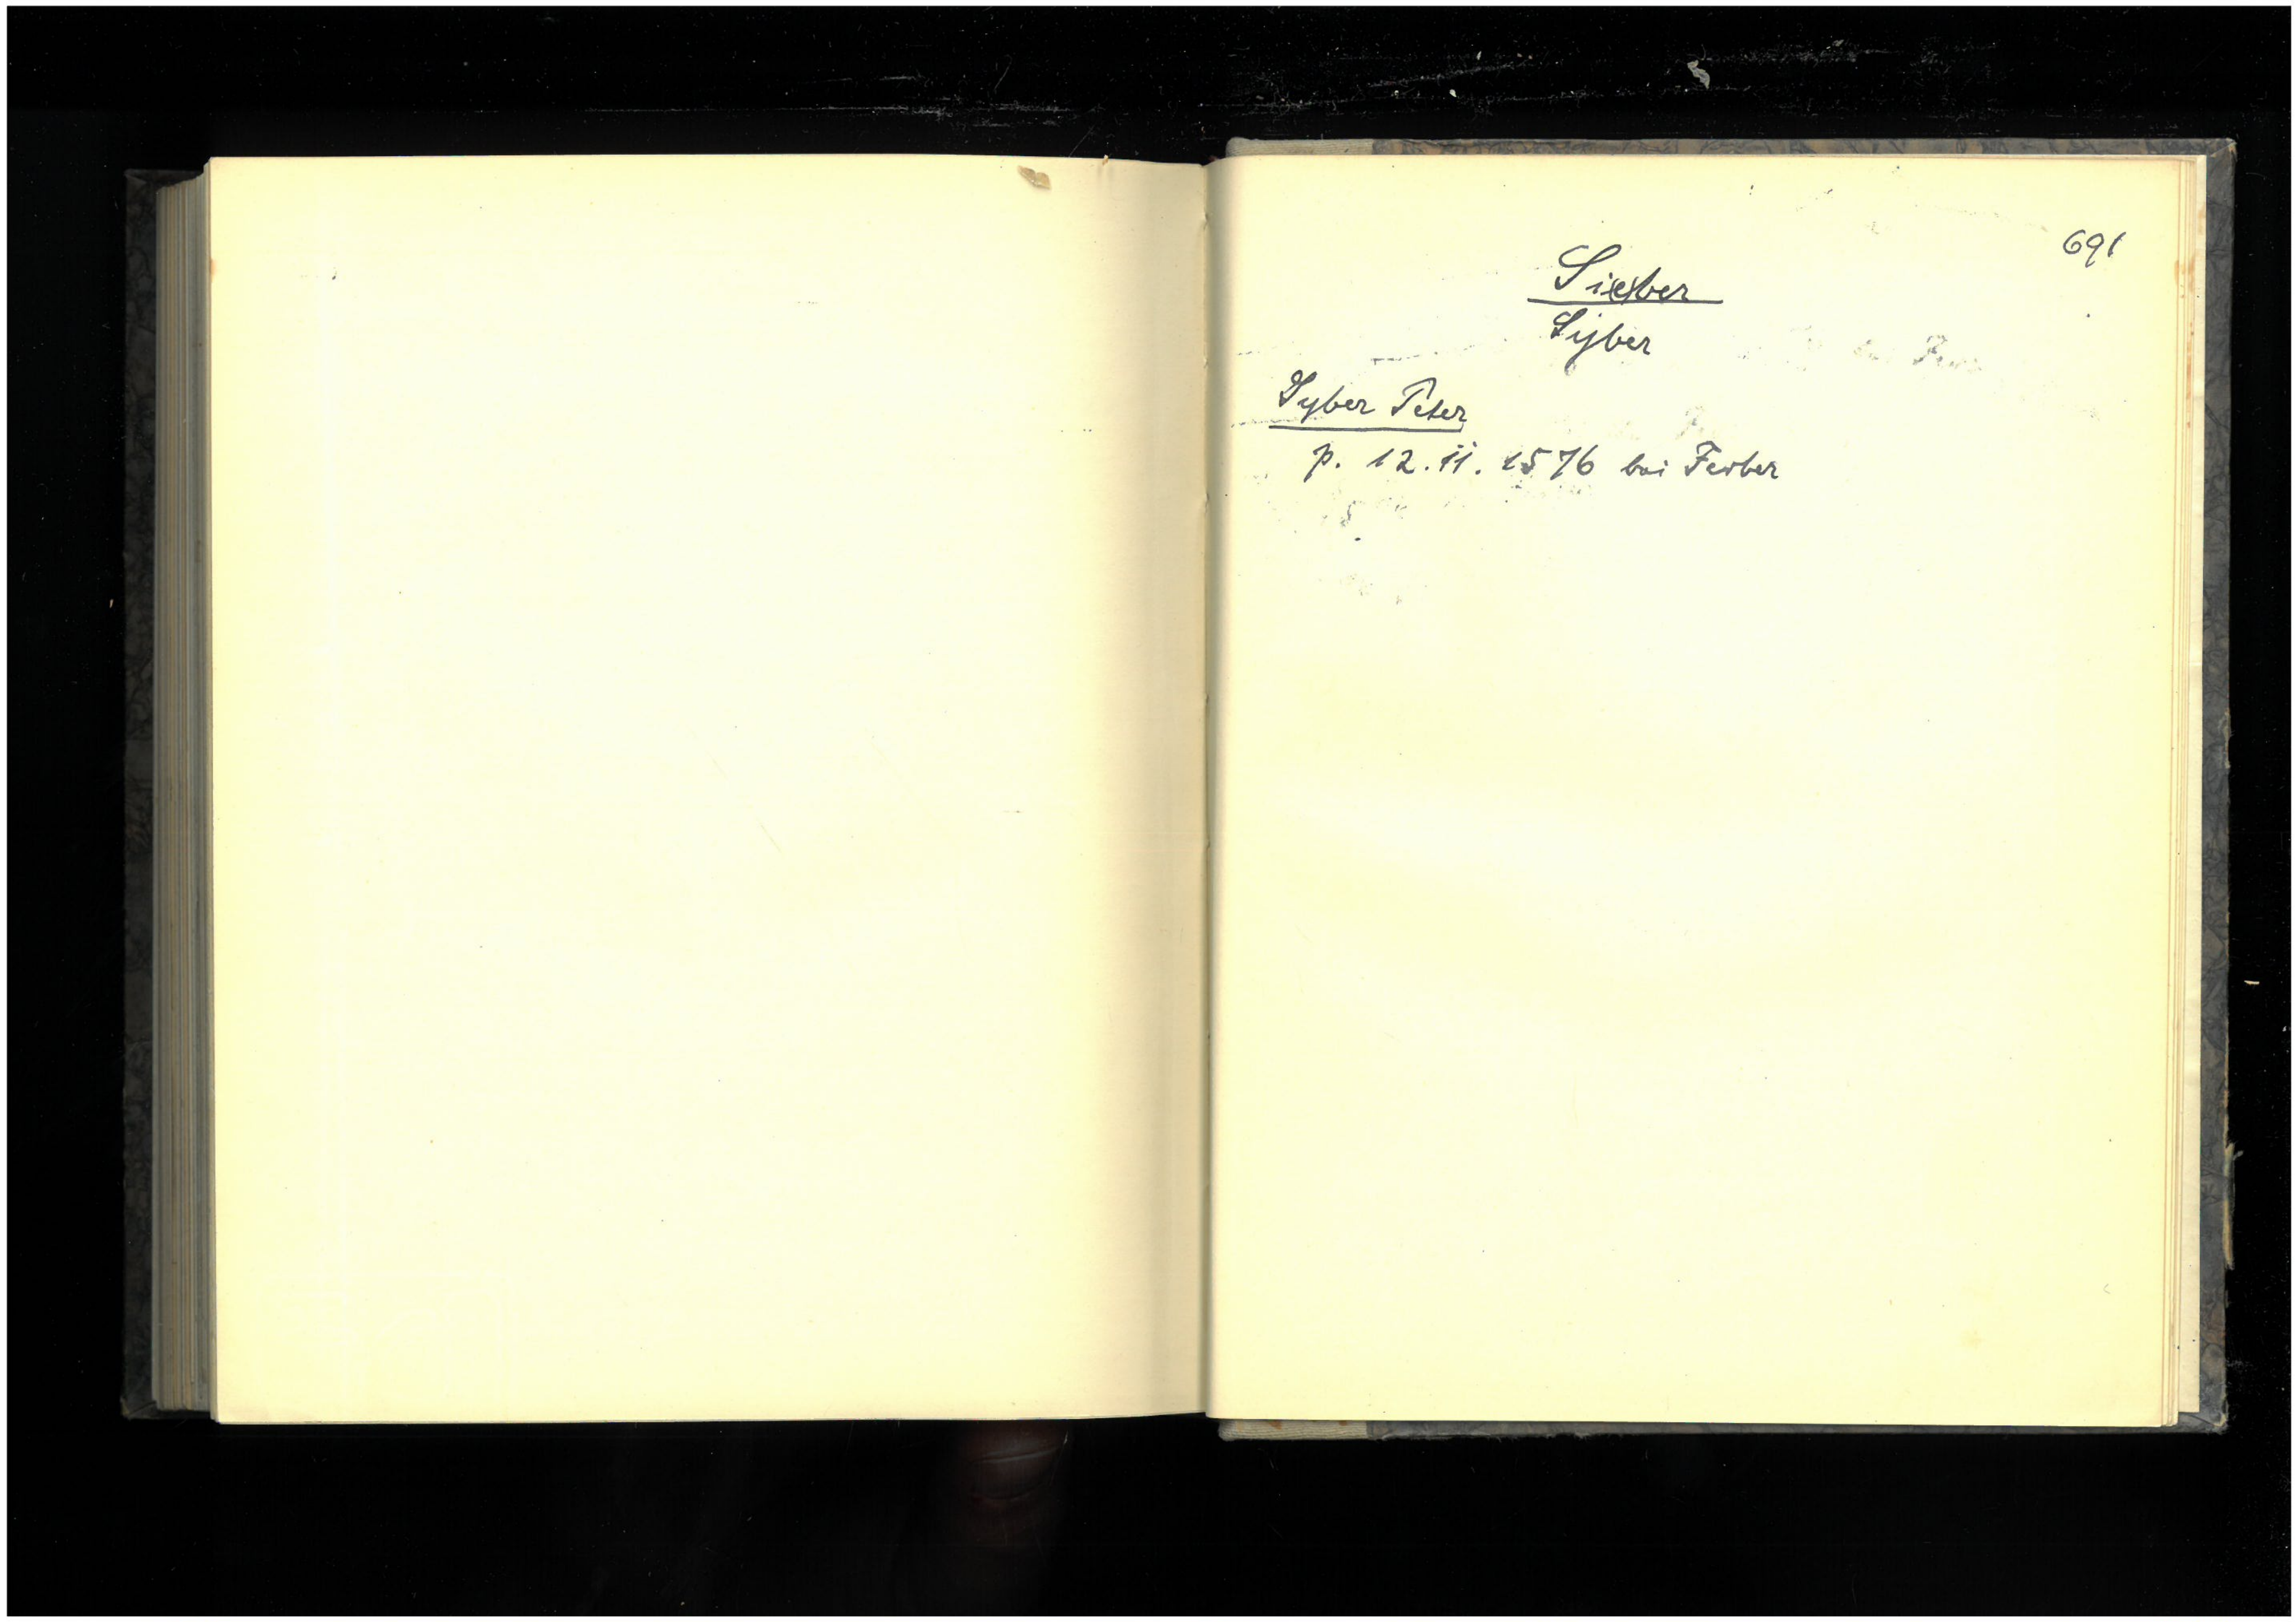 691
Si(e)ber
Syber
Syber Peter
p. 12. ii. 1576 bei Ferber